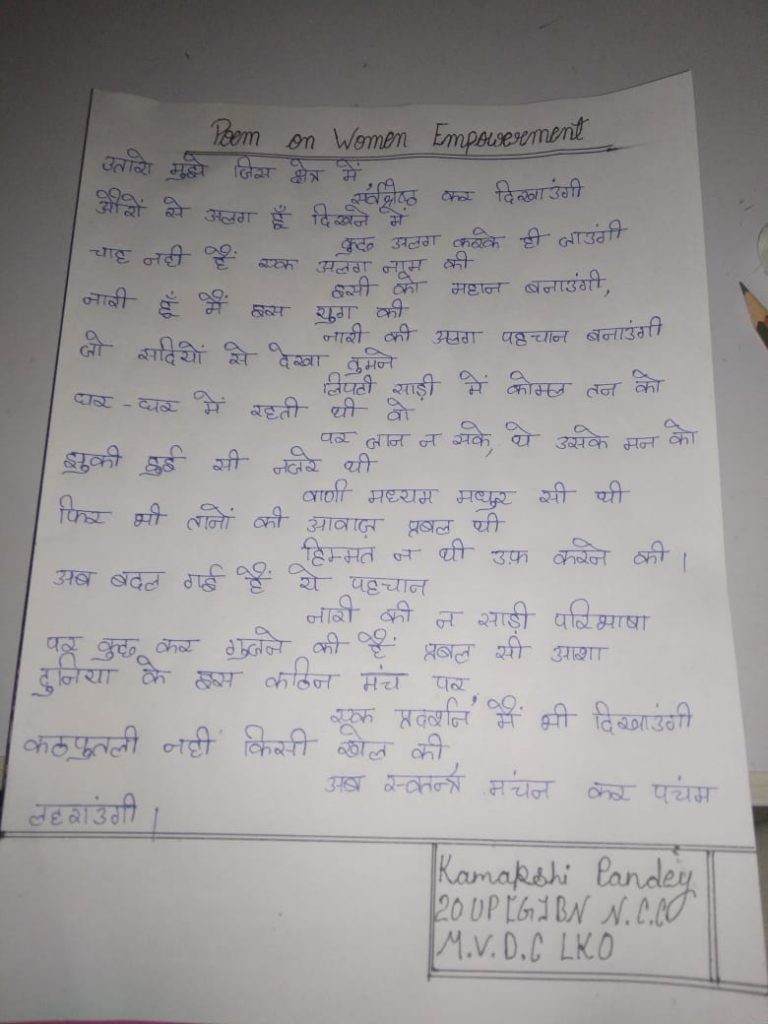 Poem on Women Empowerement
उतारो मुझे जिस क्षेत्र में
सर्वश्रेष्ठ कर दिखाउंगी
औरों से अलग हूँ दिखने में
कुछ अलग करके ही जाउंगी
चाह नही हैं एक अलग नाम की
इसी को महान बनाउंगी,
नारी हूँ मैं इस युग की
नारी की अलग पहचान बनाउंगी
जो सदियों से देखा तुमने
लिपटी साड़ी में कोमल तन को
घर-घर में रहती थी वो
पर जान न सके, थे उसके मन को
झुकी हुई सी नजरे थी
वाणी मध्यम मधुर सी थी
फिर भी तानों की आवाज़ प्रबल थी
हिम्मत न थी उफ़ करने की ।
अब बदल गई हैं ये पहचान
नारी की न साड़ी परिभाषा
पर कुछ कर गुजने की हैं प्रबल सी आशा
दुनिया के इस कठिन मंच पर,
एक प्रदर्शन में भी दिखाउंगी
कठपुतली नहीं किसी खेल की
अब मंचन कर पंचम
लहराउंगी ।
Kamakshi Pandey
20 UP [G] BN N.C.C
M.V.D.C LKO